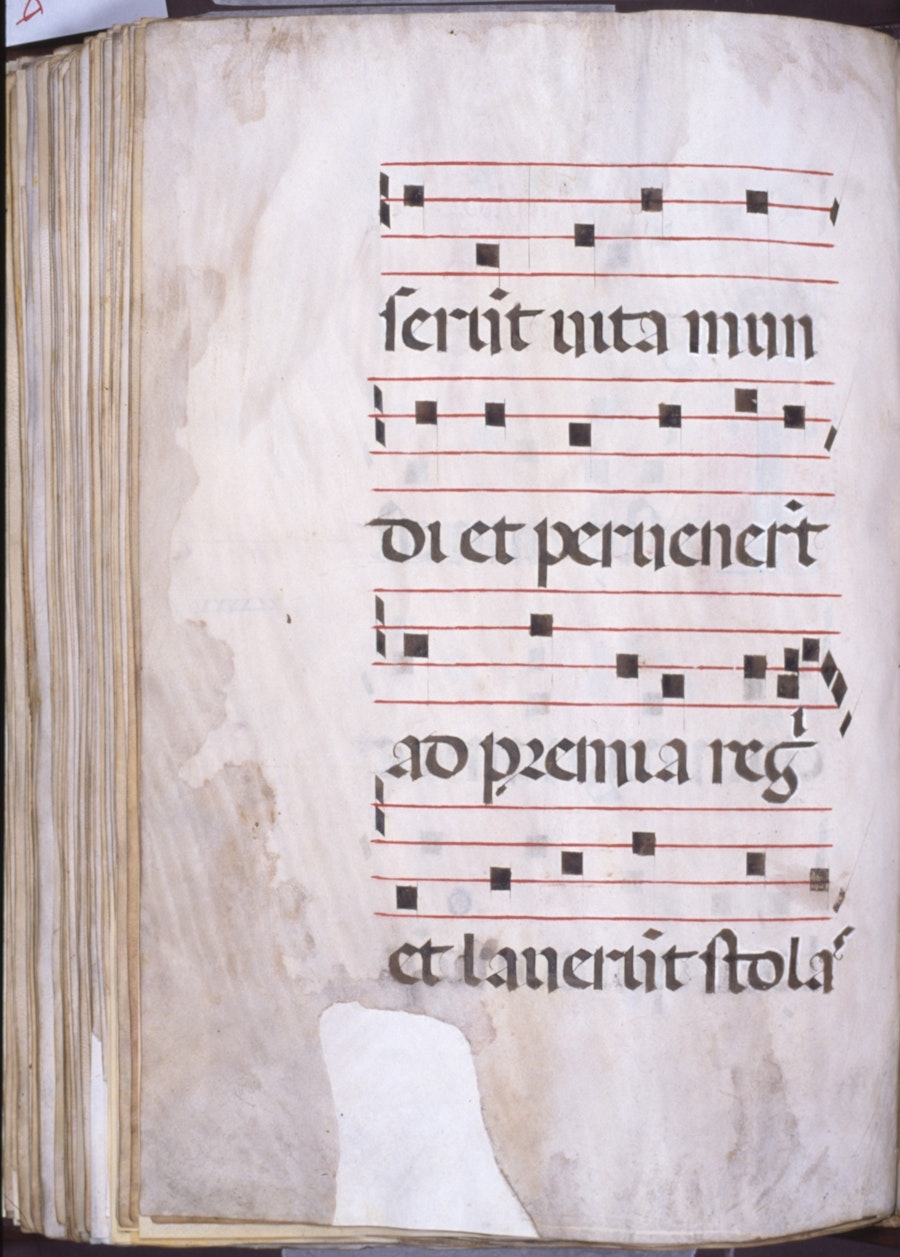 serũt uita mun
di et peruener̃t
ad premia regi
et lauerũt stolas